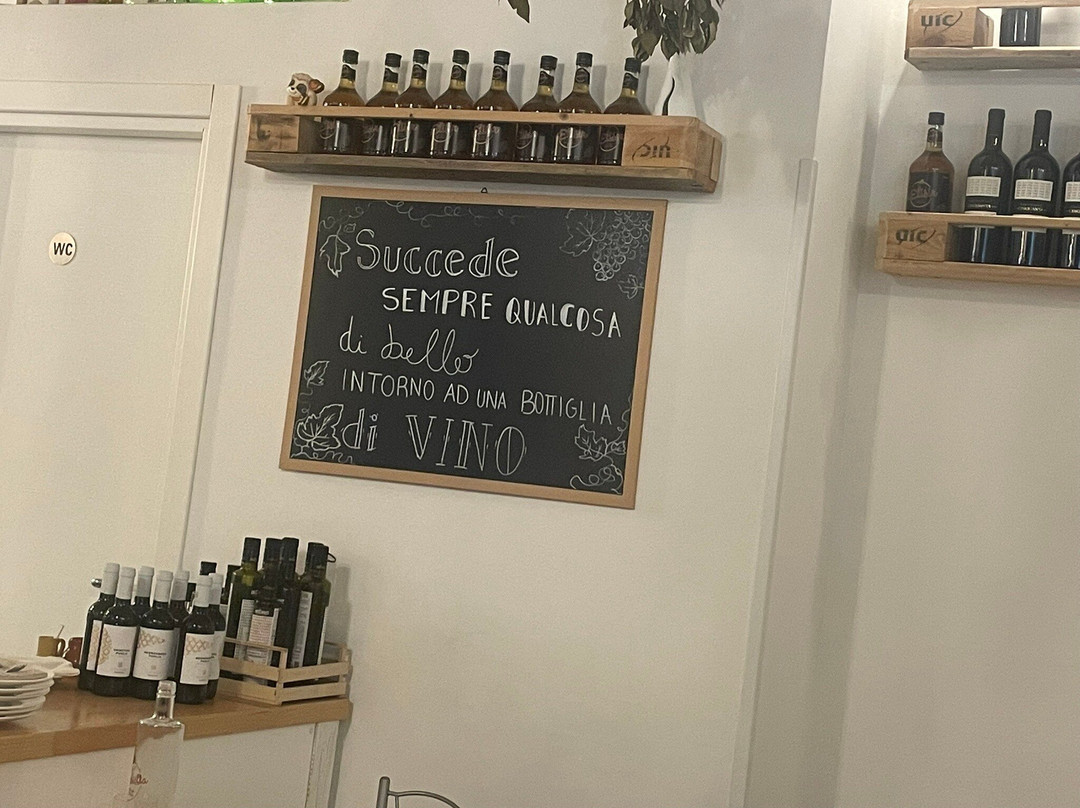 WC
Succede
SEMPRE QUALCOSA
di bello
INTORNO AD UNA BOTTIGLIA
di VINO